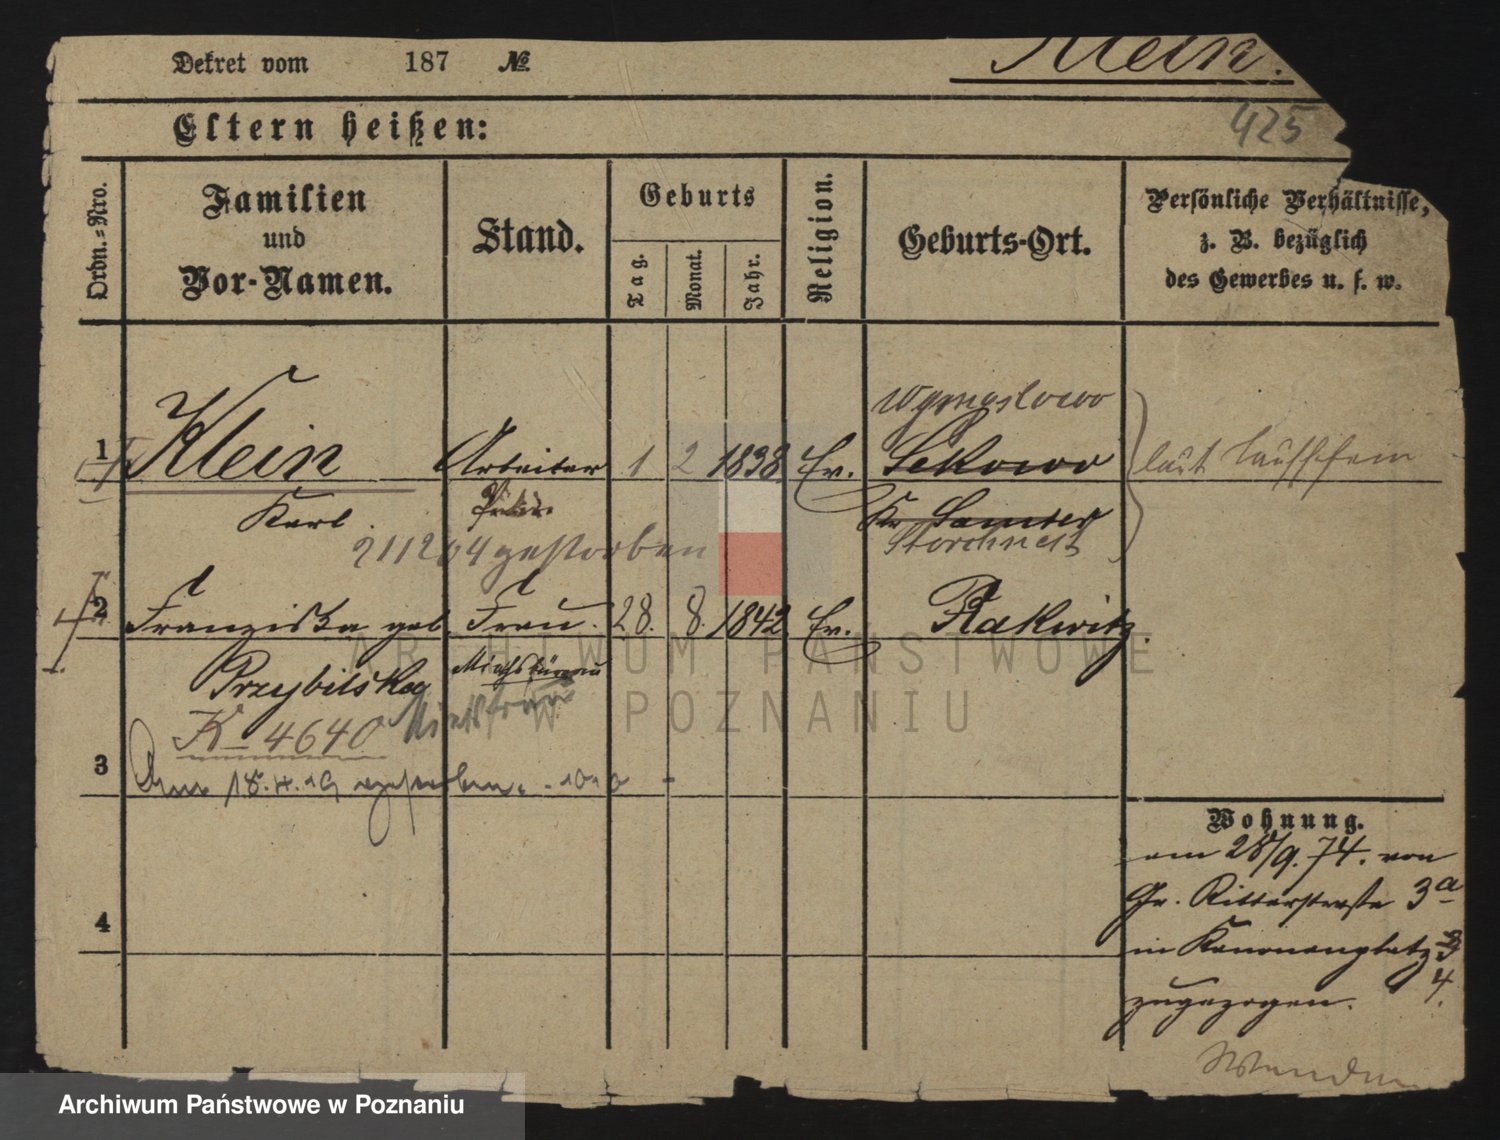 Dekret vom 187 № Klein.
425
Eltern heißen:
Ordn.-Nro.
Familien
und
Vor-Namen.
Stand.
Geburts
Tag.
Monat.
Jahr.
Religion.
Geburts-Ort.
Persönliche Verhältnisse,
z. B. bezüglich
des Gewerbes u. s. w.
Wymyslowo
1 Klein Arbeiter 1 2 1838 Ev. Sekowo laut Taufschein
Karl. Kr Samter
21 12 04 gestorben Storchnest
2 Franziska geb. Frau. 28. 8. 1842 Ev. Rakwitz.
Przybilska
K 4640
3 18. 4. 19 gestorben.
Wohnung.
am 28/9. 74. von
Gr. Ritterstraße 3a
4 in Kanonenplatz 3
4.
zugezogen.
Wenden
ARCHIWUM PAŃSTWOWE
W POZNANIU
Archiwum Państwowe w Poznaniu